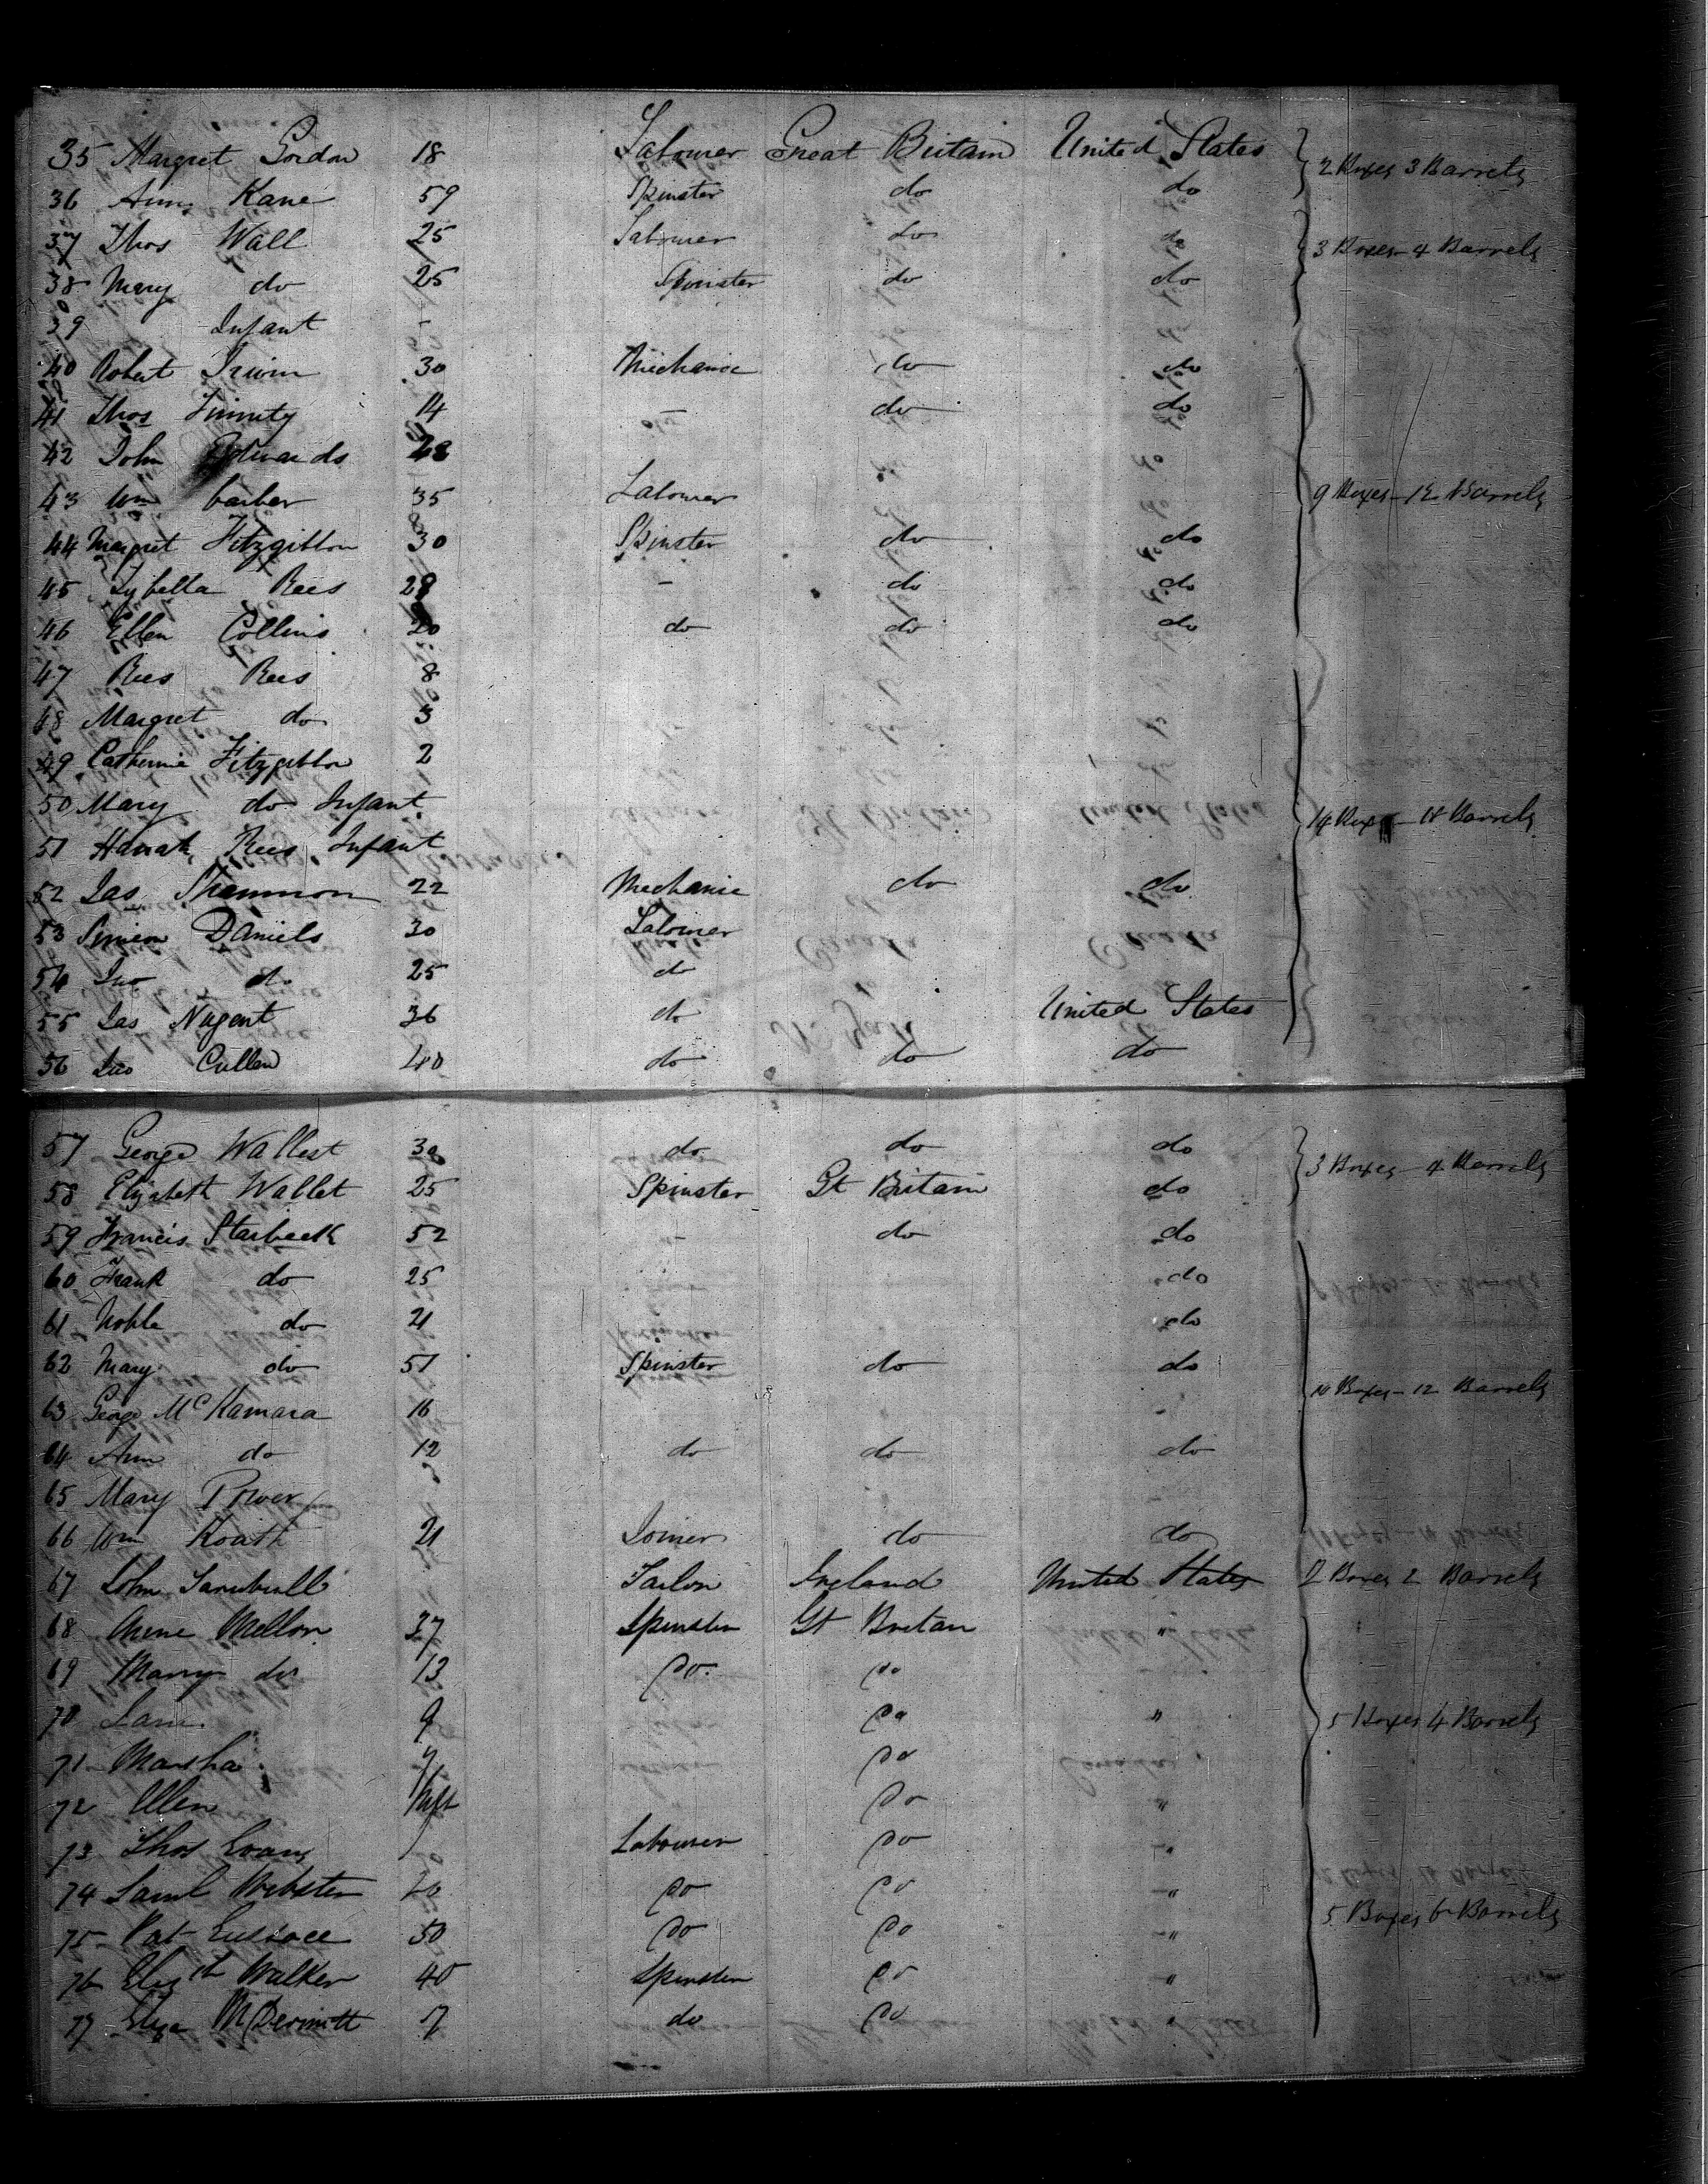 35 Margret Gordon 18 Labourer Great Britain United States 2 Boxes 3 Barrels
36 Ann Kane 59 Spinster do do
37 Thos Wall 25 Labourer do do 3 Boxes 4 Barrels
38 Mary do 25 Spinster do do
39 Infant -
40 Robert Irwin 30 Mechanic do do
41 Thos Finnity 14 - do do
42 John Edwards 28
43 Wm barber 35 Labourer 9 Boxes - 12 Barrels
44 Margret Fitzgibbon 30 Spinster do do
45 Sybella Rees 28 - do do
46 Ellen Collins 20 do do do
47 Rees Rees 8
48 Margret do 3
49 Catherine Fitzgibbon 2
50 Mary do Infant
51 Hanah Rees Infant 14 Boxes - 18 Barrels
52 Jas Shannon 22 Mechanic do do
53 Simeon Daniels 30 Labourer
54 Jno do 25 do
55 Jas Nugent 36 do United States
56 Jno Cullen 40 do do do
57 George Wallest 30 do do do 3 Boxes - 4 Barrels
58 Elizabeth Wallet 25 Spinster Gt Britain do
59 Francis Starbeck 52 do do
60 Frank do 25 do
61 Noble do 21 do
62 Mary do 51 Spinster do do
63 George McKamara 16 10 Boxes - 12 Barrels
64 Ann do 12 do do do
65 Mary Power
66 Wm Koath 21 Joiner do do
67 John Tailor Ireland United States 2 Boxes 2 Barrels
68 Mellon 37 Spinster Gt Bretan "
69 Marry do 13 Do. Do
70 Jane 9 Do "
71 Marsha 7 Do 5 Boxes 4 Barrels
72 Ellen Inft Do "
73 Thos Evans Labourer Do "
74 Saml Webster 20 Do Do "
75 Pat 50 Do Do " 5 Boxes 6 Barrels
76 Elizth Walker 40 Spinster Do "
77 Eliza McDermitt 7 do Do "